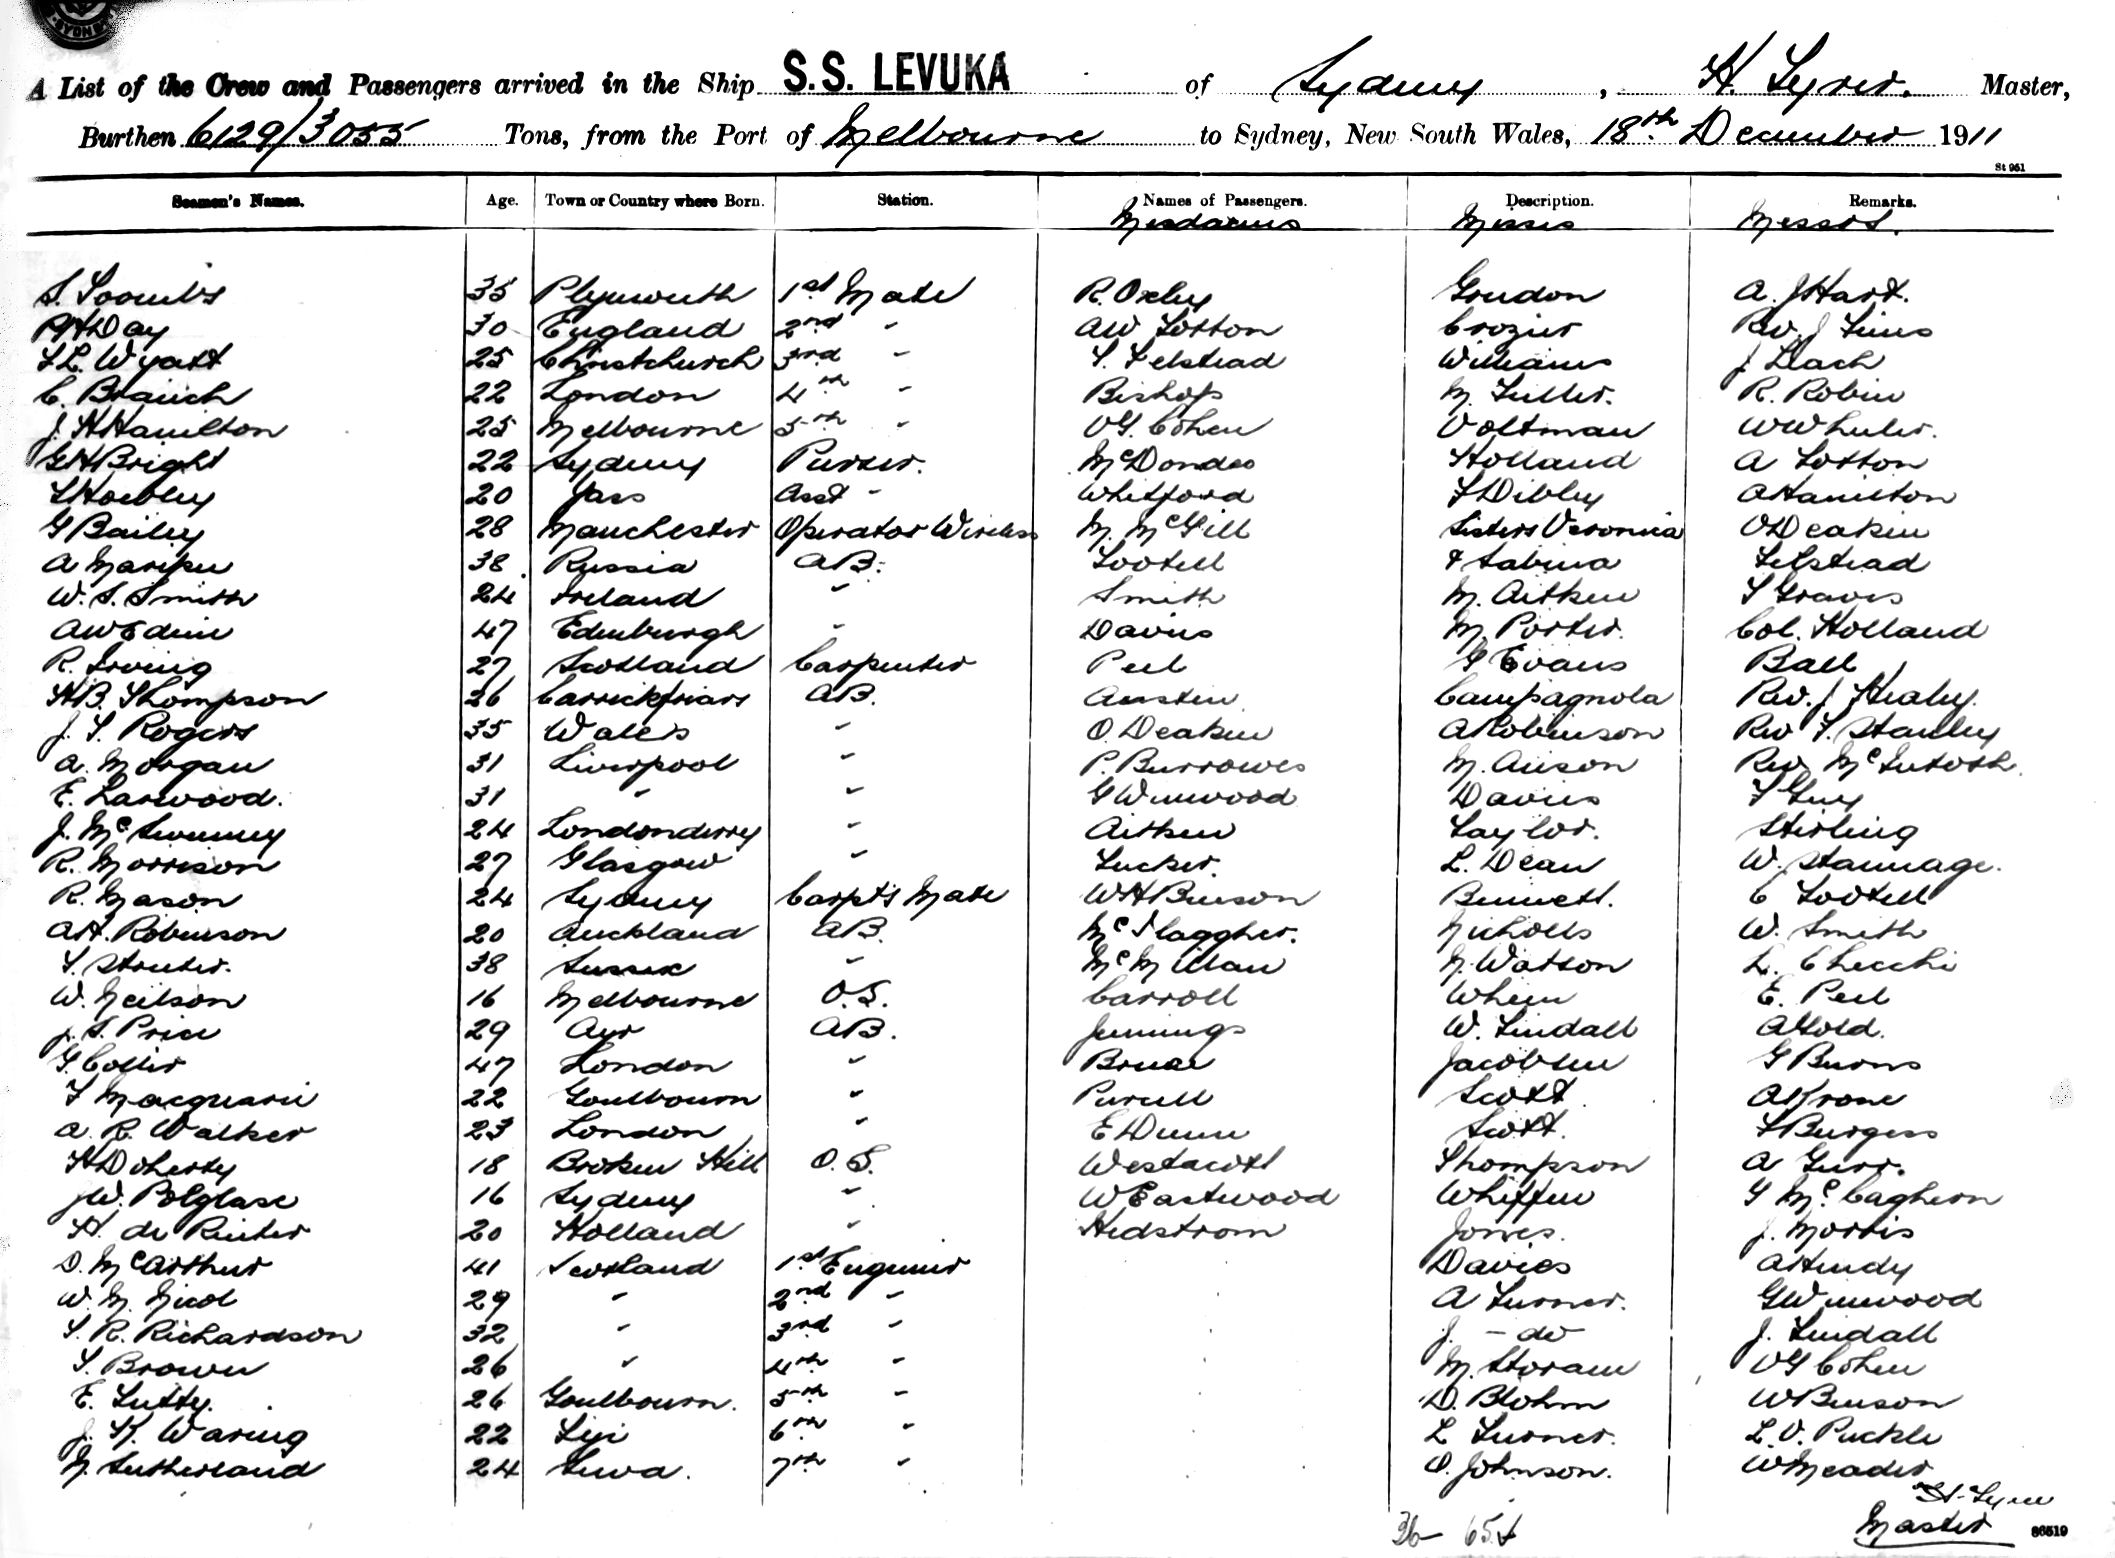 SYDNEY
A List of the Crew and Passengers arrived in the Ship S.S. LEVUKA of Sydney, H. Syrer. Master,
Burthen 6129/3055 Tons, from the Port of Melbourne to Sydney, New South Wales, 18th December 1911
St 951
Seamen's Names. Age. Town or Country where Born. Station. Names of Passengers. Description. Remarks.
Mesdames Misses Messrs.
S. Toombs 35 Plymouth 1st Mate R. Oxley Gordon A. J Hart.
Day 30 England 2nd " AW Totton Crozier Rev. J Sims
Wyatt 25 Christchurch 3rd " Felstead Williams J Leach
C. Branch 22 London 4th " Bishop M. Fuller. R. Robin
J. H Hamilton 25 Melbourne 5th " VG. Cohen Voltman W Wheeler.
GH Bright 22 Sydney Purser. McDondes Holland A Totton
20 Yass Asst " Whitford Dibley A Hamilton
G Bailey 28 Manchester Operator Wireless M. McGill Sisters Veronica O Deakin
A 38 Russia AB. Tootell & Sabina Felstead
W. S. Smith 24 Ireland " Smith M. Aitken T Graves
AW Edin 47 Edinburgh " Davies M. Porter. Col. Holland
R. Irving 27 Scotland Carpenter Peel G Evans Ball
HB. Thompson 26 Carrickfriars AB. Austin Campagnola Rev. J Healy.
J. S. Rogers 35 Wales " O Deakin A Robinson Rev T. Stanley
A. Morgan 31 Liverpool " P. Burrowes M. Anson Rev McIntosh
E. Larwood. 31 " " G Winwood Davies T Guy
J. McSweeney 24 Londonderry " Aitken Taylor. Stirling
R. Morrison 27 Glasgow " Tucker. L. Dean W. Stannage.
R. Mason 24 Sydney Carpts Mate WH Benson Bennett. C Tootell
AH. Robinson 20 Auckland AB. McFlaggher. Nicholls W. Smith
38 Sussex " McMillan N. Watson L. Checchi
W. Neilson 16 Melbourne O.S. Carroll Whein E. Peel
J. S. Price 29 Ayr AB. Jennings W. Tindall A Gold.
G. Collier 47 London " Bruce Jacobsen G Burns
T Macquarie 22 Goulbourn " Purcell Scott A Krone
A. R. Walker 23 London " E Dunn Scott. T Burgess
H Doherty 18 Broken Hill O.S. Westacott Thompson A Gurr.
JW. Polglase 16 Sydney " W Eastwood Whiffen G McCaghern
H. de Ruiter 20 Holland " Hedstrom Jones. J. Morris
D. McArthur 41 Scotland 1st Engineer Davies A Hendy
W. M. Nicol 29 " 2nd " A Turner. G Winwood
T. R. Richardson 32 " 3rd " J. - do J. Tindall
T. Brown 26 " 4th " M. Storam VG Cohen
E. Tutty. 26 Goulbourn. 5th " D. Blohm W Benson
J. K. Waring 22 Fiji 6th " L Turner. L. V. Puckle
N. Sutherland 24 Suva. 7th " O. Johnson. W Meader
Master
36- 65
86519